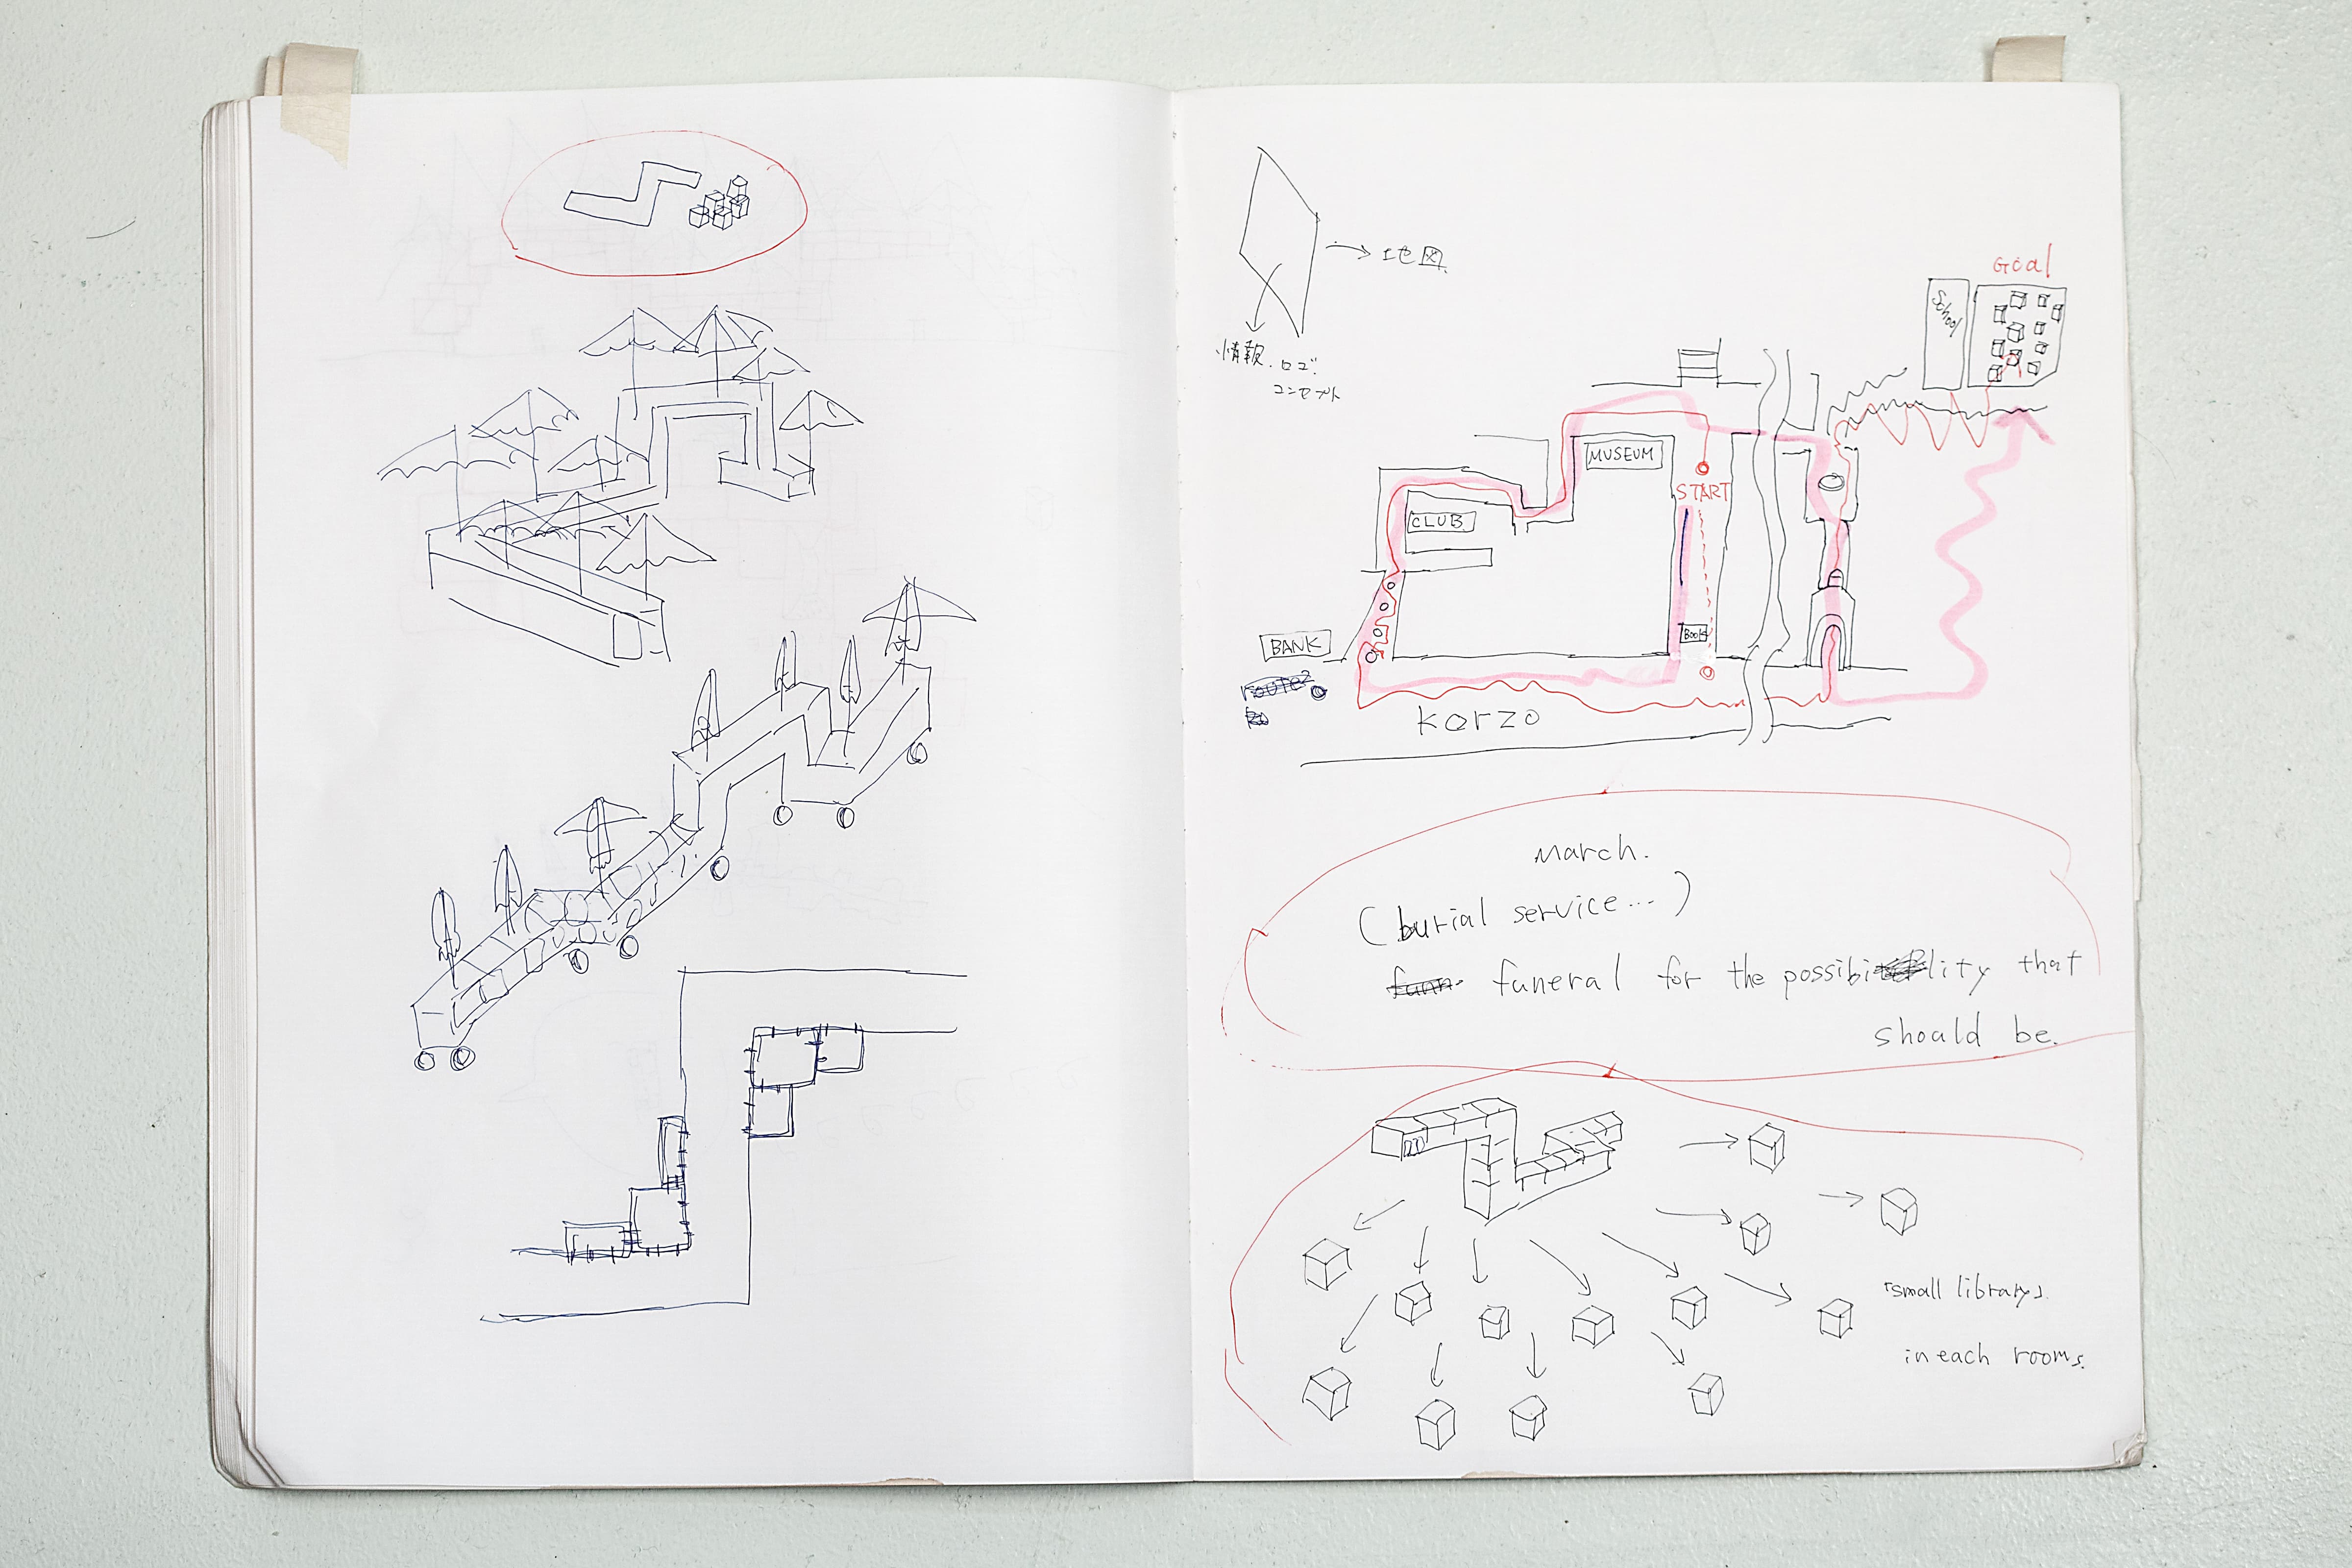 →地図
情報.ロゴ.
コンセプト
Goal
School
MUSEUM
START
CLUB
Book
BANK
route2
korzo
March.
(burial service...)
funeral for the possibility that
should be.
「small library」
in each rooms.